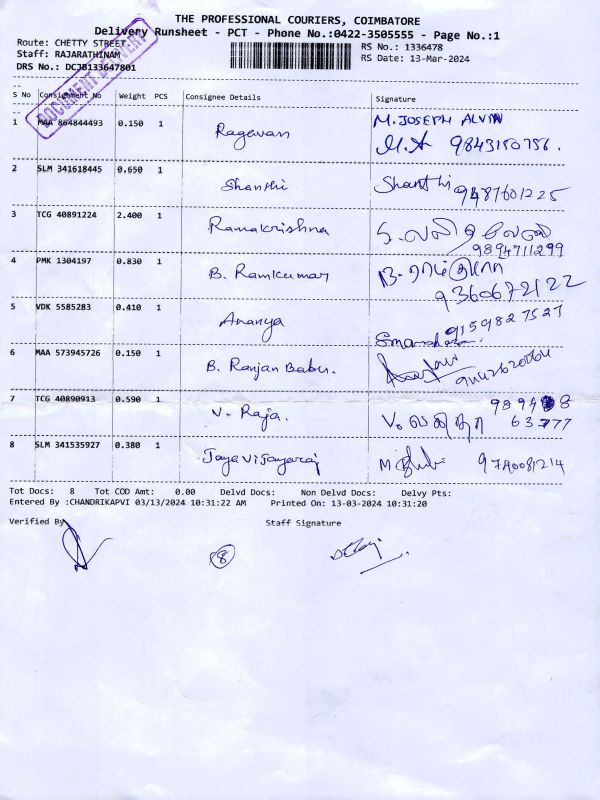 THE PROFESSIONAL COURIERS, COIMBATORE
Delivery Runsheet - PCT - Phone No.:0422-3505555 - Page No.:1
Route: CHETTY STREET
RS No.: 1336478
Staff: RAJARATHINAM
RS Date: 13-Mar-2024
DRS No.: DCJB133647801
DOCUMENT DELIVERY
S No Consignment No Weight PCS Consignee Details Signature
1 MAA 864844493 0.150 1 Ragavan M. JOSEPH ALVIN
M.A 9843150756.
2 SLM 341618445 0.650 1 Shanthi Shanthi 9487601225
3 TCG 40891224 2.400 1 Ramakrishna
9894711299
4 PMK 1304197 0.830 1 B. Ramkumar B. ராம்குமார்
9360672122
5 VDK 5585283 0.410 1 Ananya 9159827527
6 MAA 573945726 0.150 1 B. Ranjan Babu.
7 TCG 40890913 0.590 1 V. Raja.
63777
8 SLM 341535927 0.380 1 Jayavijayaraj 9740081214
Tot Docs: 8 Tot COD Amt: 0.00 Delvd Docs: Non Delvd Docs: Delvy Pts:
Entered By :CHANDRIKAPVI 03/13/2024 10:31:22 AM Printed On: 13-03-2024 10:31:20
Verified By Staff Signature
8